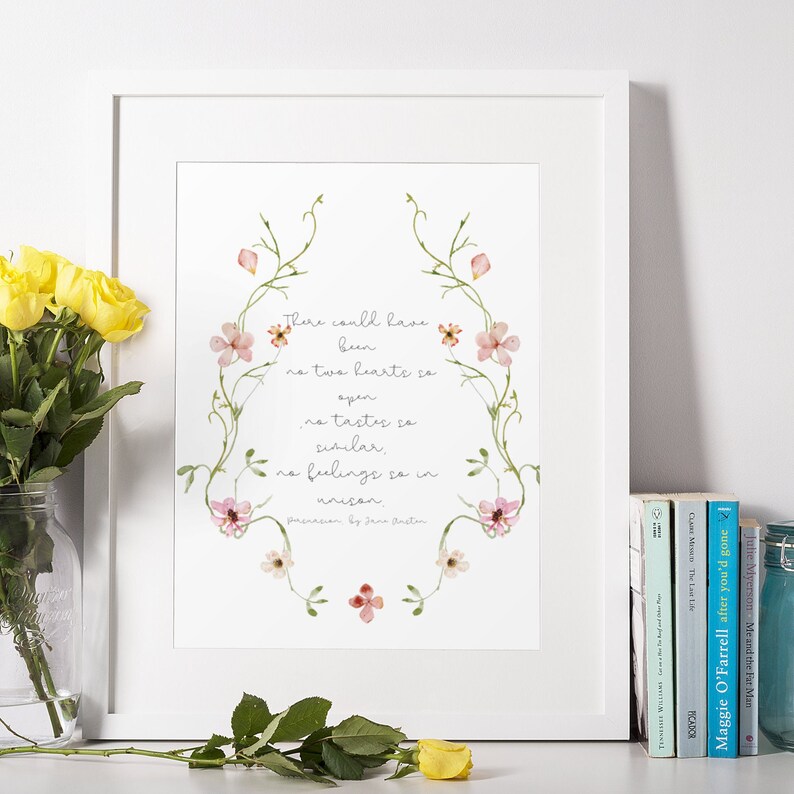 There could have
been
no two hearts so
open
,no tastes so
similar,
no feelings so in
unison,
persuasion by Jane Austen
TENNESSEE WILLIAMS Cat on a Hot Tin Roof and Other Plays
CLAIRE MESSUD The Last Life
PICADOR
Maggie O'Farrell after you'd gone
Julie Myerson - Me and the Fat Man
Mason